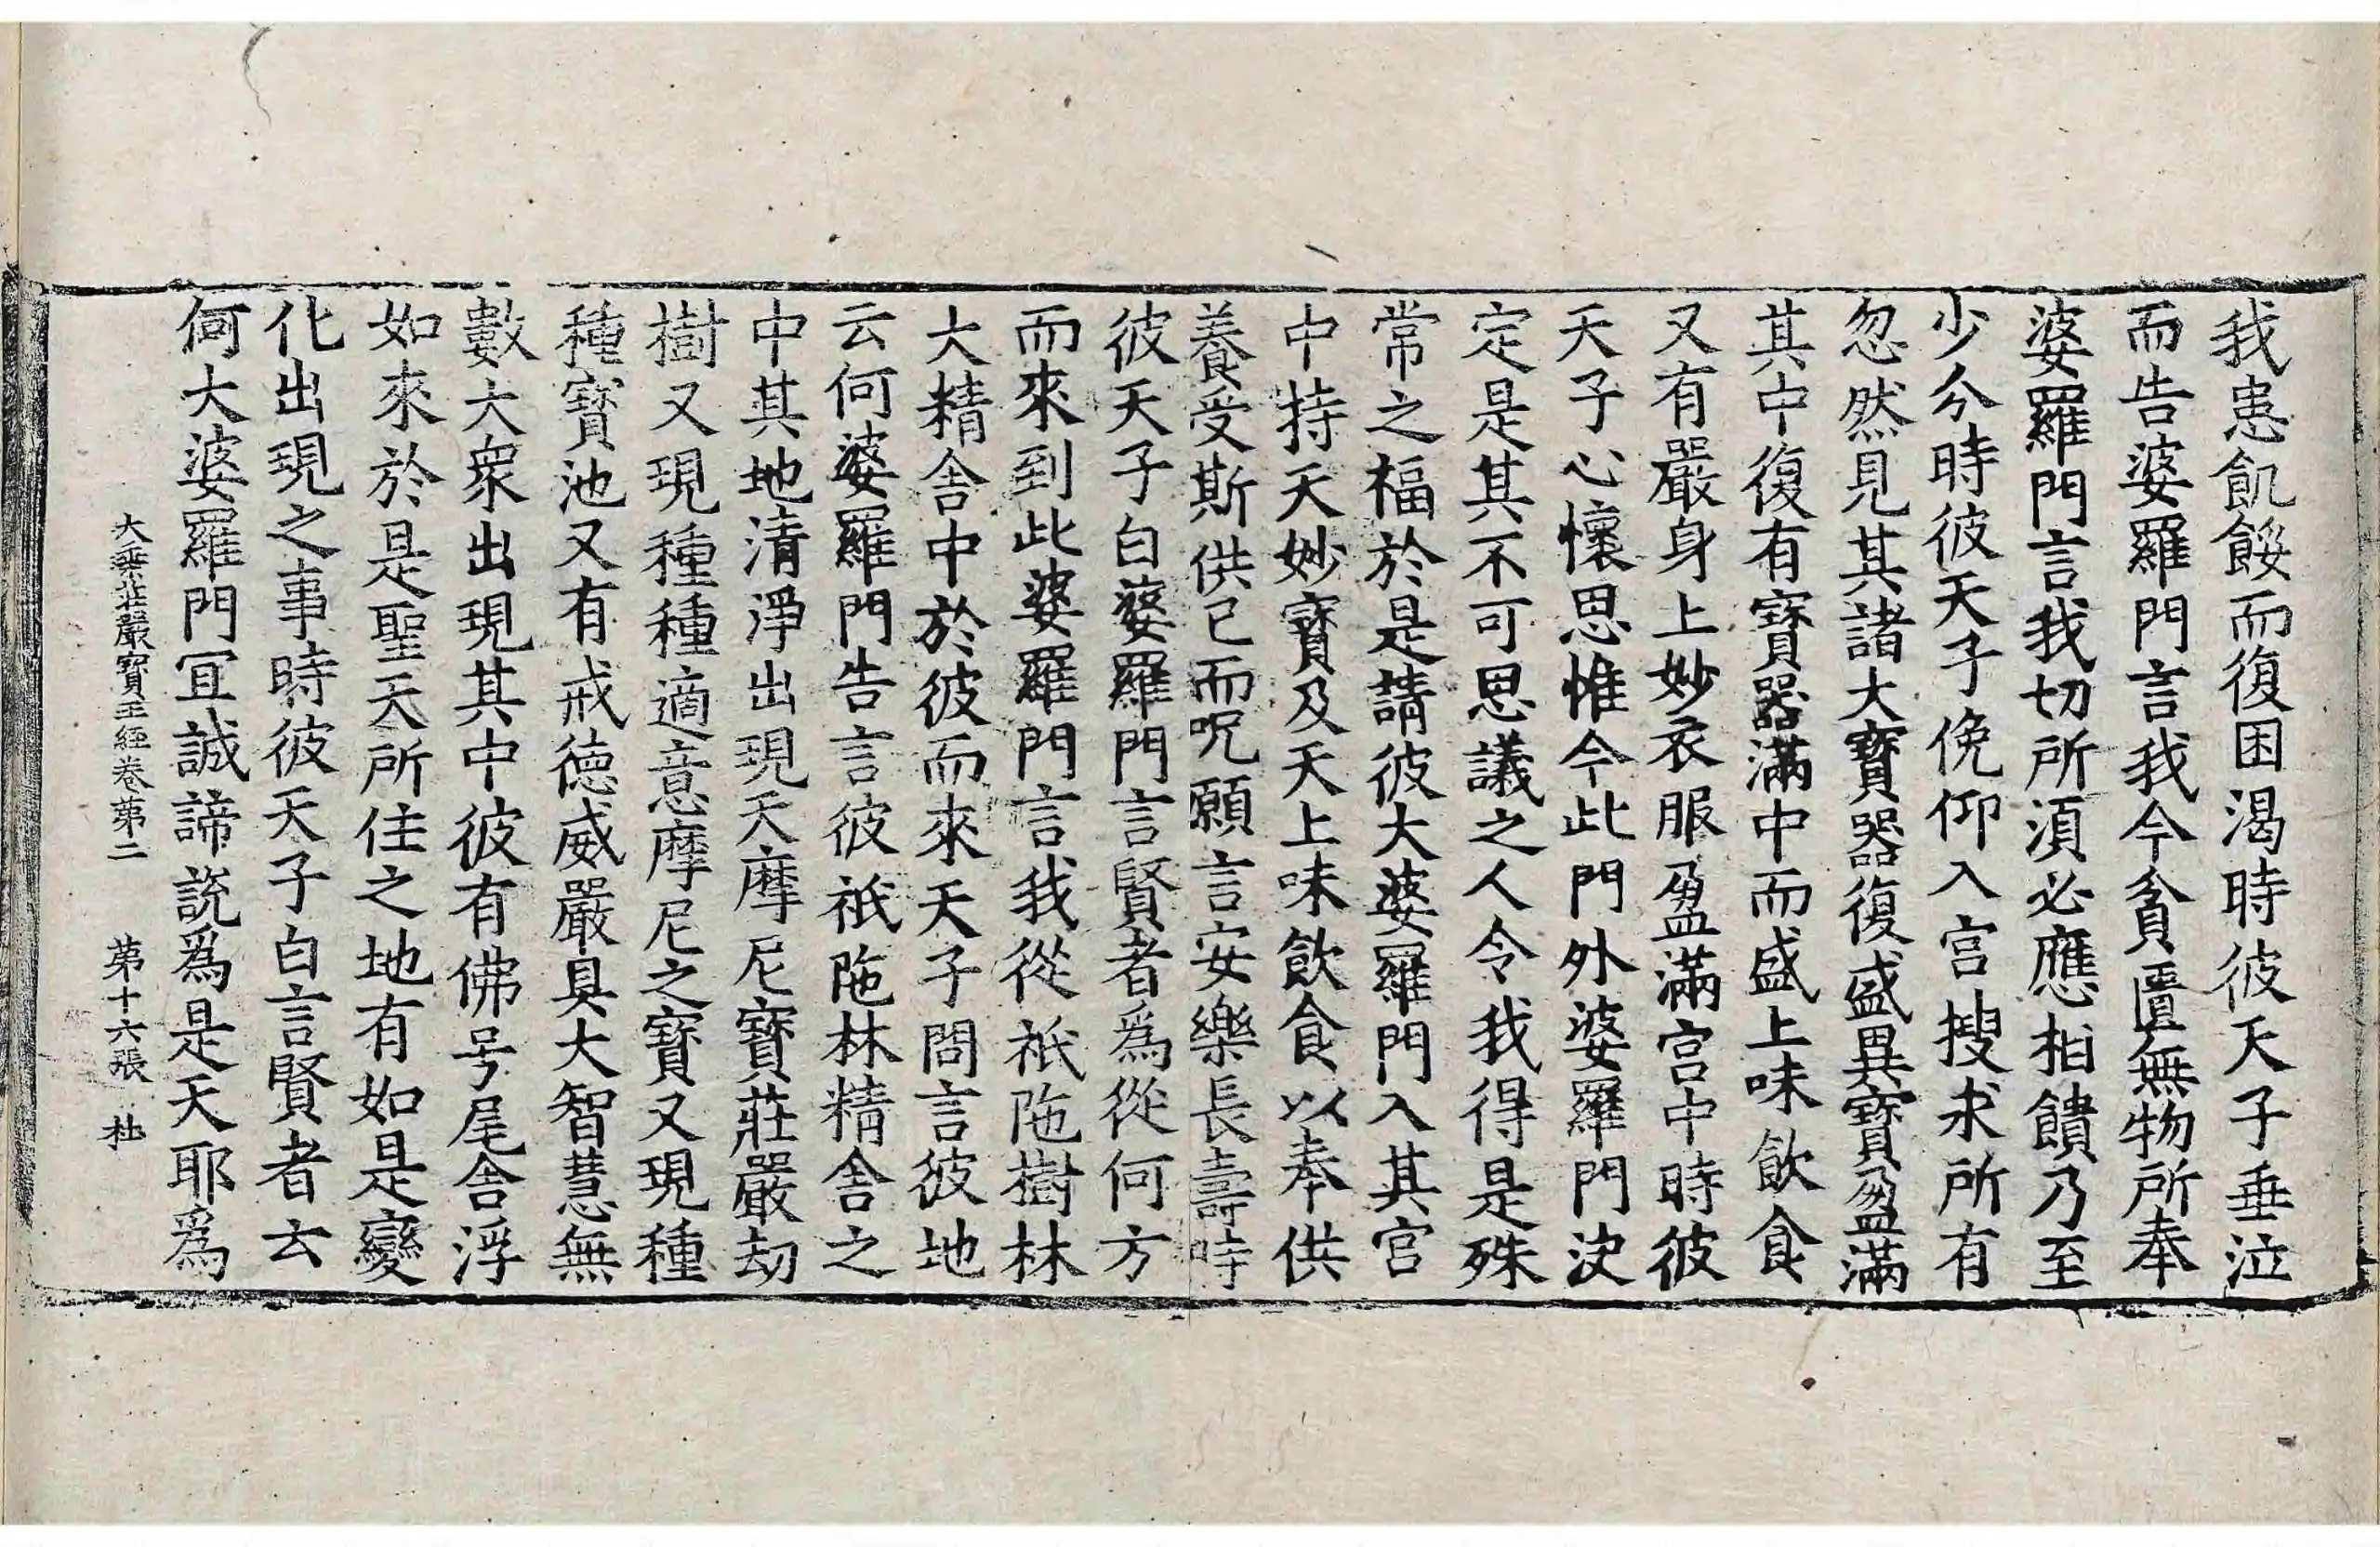 我患飢餒而復困渴時彼天子垂泣
而告婆羅門言我今貧匱無物所奉
婆羅門言我切所須必應相饋乃至
少分時彼天子俛仰入宫搜求所有
忽然見其諸大寶器復盛異寶盈滿
其中復有寶器滿中而盛上味飲食
又有嚴身上妙衣服盈滿宫中時彼
天子心懷思惟今此門外婆羅門決
定是其不可思議之人令我得是殊
常之福於是請彼大婆羅門入其宫
中持天妙寶及天上味飲食以奉供
養受斯供已而呪願言安樂長壽時
彼天子白婆羅門言賢者爲從何方
而來到此婆羅門言我從祇陁樹林
大精舍中於彼而來天子問言彼地
云何婆羅門告言彼祇陁林精舍之
中其地清淨出現天摩尼寶莊嚴劫
樹又現種種適意摩尼之寶又現種
種寶池又有戒德威嚴具大智慧無
數大衆出現其中彼有佛号尾舍浮
如來於是聖天所住之地有如是變
化出現之事時彼天子白言賢者云
何大婆羅門宜誠諦說爲是天耶爲
大乘莊嚴寶王經卷第二 第十六張 杜